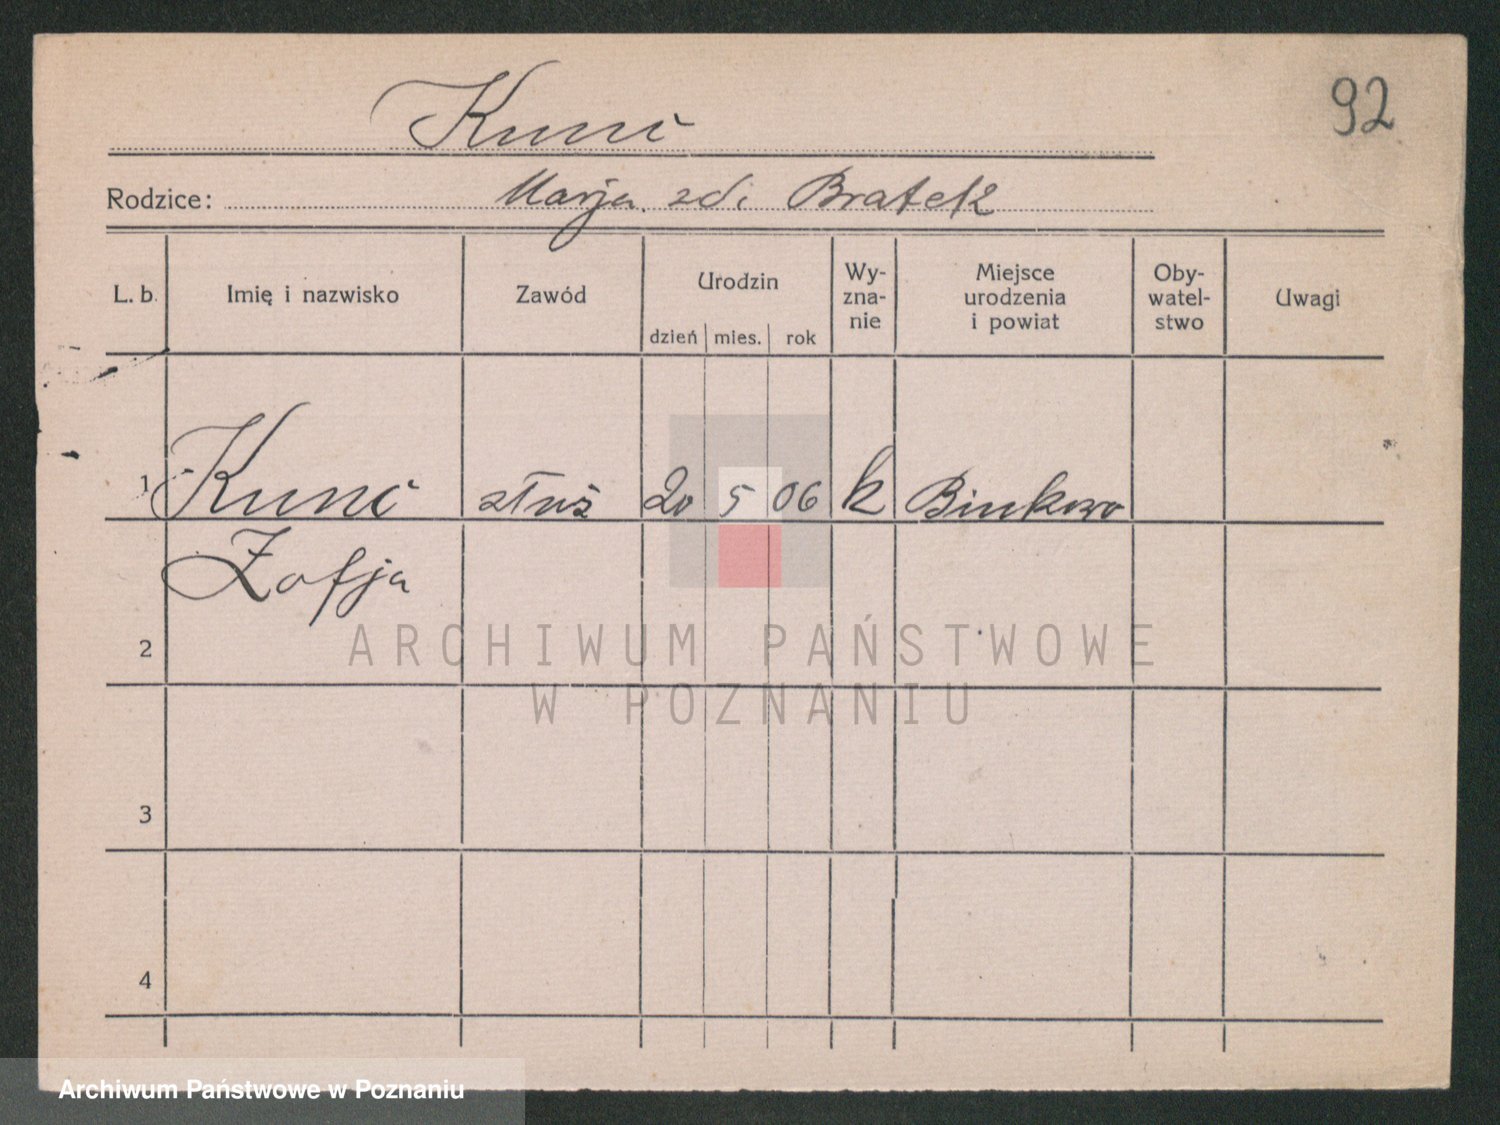 92
Kunc
Rodzice: Marja zd. Bratek
L. b. Imię i nazwisko Zawód Urodzin Wy-zna-nie Miejsce urodzenia i powiat Oby-watel-stwo Uwagi
dzień mies. rok
1 Kunc służ 20 5 06 k Binkowo
Zofja
2
ARCHIWUM PAŃSTWOWE
W POZNANIU
3
4
Archiwum Państwowe w Poznaniu